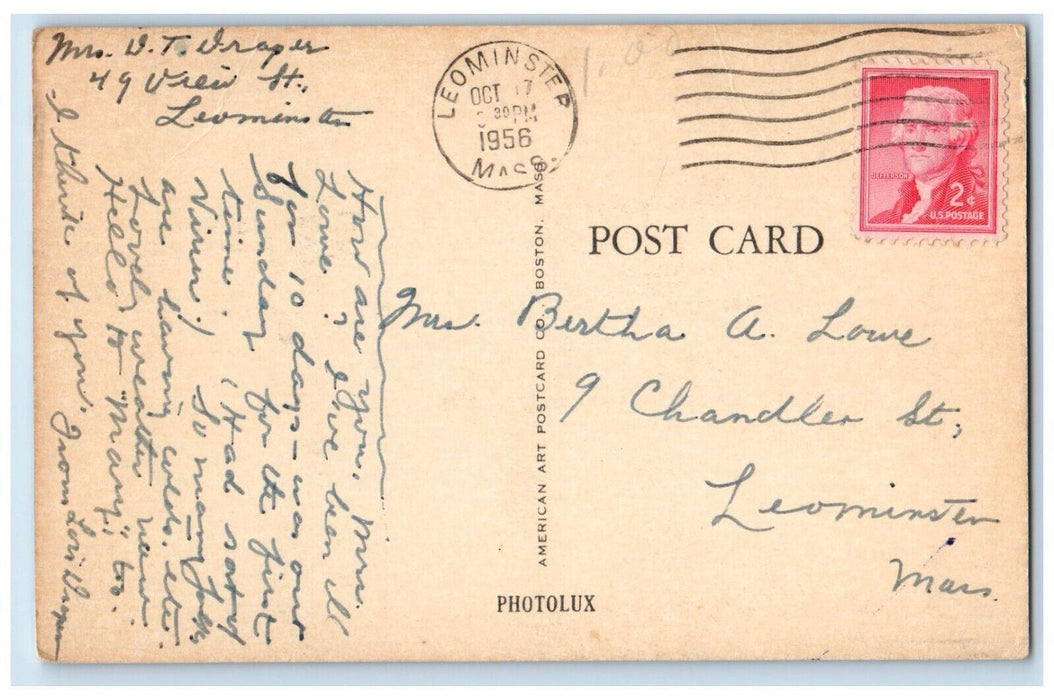 Mrs. D. T. Draper
49 View St.,
Leominster
LEOMINSTER
OCT 17
30 PM
1956
MASS.
1.00
JEFFERSON
2¢
U.S. POSTAGE
POST CARD
Mrs. Bertha A. Lowe
9 Chandler St,
Leominster
Mass.
How are you, Mrs.
Lowe? I've been ill
for 10 days - was out
Sunday for the first
time. (Had sort of
Virus.) So many folk
are having colds, etc.
Lovely weather now
Hello to "Mary," too.
I think of you. From Lori Draper
AMERICAN ART POSTCARD CO., BOSTON, MASS.
PHOTOLUX